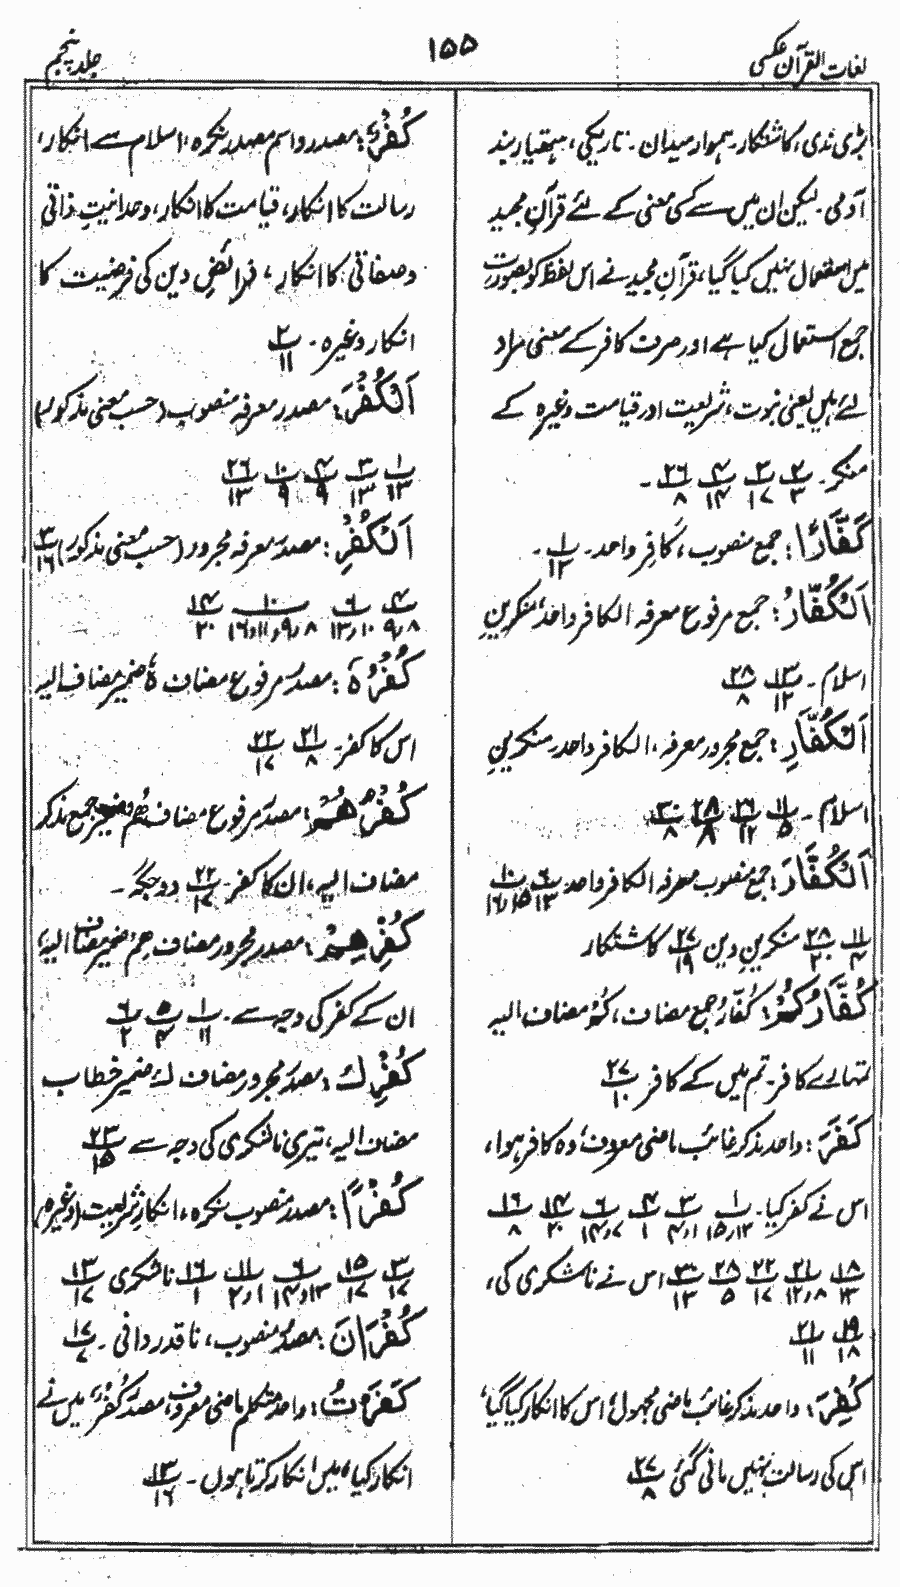 لغات القرآن عکسی
۱۵۵
جلد پنجم
بڑی ندی، کاشتکار۔ ہموار میدان۔ تاریکی، ہتھیار بند
آدمی۔ لیکن ان میں سے کسی معنی کے لئے قرآنِ مجید
میں استعمال نہیں کیا گیا، قرآنِ مجید نے اس لفظ کو بصورت
جمع استعمال کیا ہے اور صرف کافر کے معنی مراد
لئے ہیں یعنی نبوت، شریعت اور قیامت وغیرہ کے
منکر۔ ۲/۳ ۳/۱۷ ۴/۱۴ ۲۶/۸ ۔
کُفَّارًا: جمع منصوب، کَافِر واحد۔ ۱/۱۲ ۔
اَلْکُفَّارُ: جمع مرفوع معرفہ الکافر واحد، منکرین
اسلام۔ ۱۳/۱۲ ۲۸/۸
اَلْکُفَّارِ: جمع مجرور معرفہ، الکافر واحد۔ منکرینِ
اسلام۔ ۱۱/۵ ۲۶/۱۲ ۲۸/۸ ۳۰/۸
اَلْکُفَّارَ: جمع منصوب معرفہ الکافر واحد ۶/۱۳ ۱۰/۱۵،۱۶
۱۱/۴ ۲۸/۲۰ منکرینِ دین ۲۷/۱۹ کاشتکار
کُفَّارُکُمْ: کُفَّارُ جمع مضاف، کُمْ مضاف الیہ
تمہارے کافر۔ تم میں کے کافر ۲۷/۱۰
کَفَرَ: واحد مذکر غائب ماضی معروف، وہ کافر ہوا،
اس نے کفر کیا۔ ۱/۱۲،۱۵ ۳/۱،۴ ۴/۱ ۶/۷،۱۴ ۱۴/۲۰ ۱۶/۸
۱۸/۱۳ ۲۱/۸،۱۲ ۲۲/۱۷ ۲۸/۵ ۳۰/۱۳ اس نے ناشکری کی،
۱۹/۱۸ ۲۱/۱۱
کُفِرَ: واحد مذکر غائب ماضی مجہول، اس کا انکار کیا گیا،
اس کی رسالت نہیں مانی گئی ۲۷/۸
کُفْرٌ: مصدر و اسم مصدر نکرہ، اسلام سے انکار،
رسالت کا انکار، قیامت کا انکار، وحدانیتِ ذاتی
و صفاتی کا انکار، فرائضِ دین کی فرضیت کا
انکار وغیرہ۔ ۲/۱۱
اَلْکُفْرَ: مصدر معرفہ منصوب (حسب معنی مذکور)
۱/۱۳ ۳/۱۳ ۴/۹ ۱۰/۹ ۲۶/۱۳
اَلْکُفْرِ: مصدر معرفہ مجرور (حسب معنی مذکور) ۳/۱۶
۴/۸،۹ ۶/۱۰،۱۳ ۱۰/۸،۹،۱۱،۱۶ ۱۴/۲۰
کُفْرُہٗ: مصدر مرفوع مضاف ہٗ ضمیر مضاف الیہ
اس کا کفر۔ ۲۱/۸ ۲۲/۱۷
کُفْرُھُمْ: مصدر مرفوع مضاف ھُمْ ضمیر جمع مذکر
مضاف الیہ، ان کا کفر۔ ۲۲/۱۷ دو جگہ۔
کُفْرِھِمْ: مصدر مجرور مضاف ھِمْ ضمیر مضاف الیہ،
ان کے کفر کی وجہ سے۔ ۱/۱۱ ۵/۴ ۶/۲
کُفْرِكَ: مصدر مجرور مضاف كَ ضمیر خطاب
مضاف الیہ، تیری ناشکری کی وجہ سے ۲۳/۱۵
کُفْرًا: مصدر منصوب نکرہ، انکارِ شریعت (وغیرہ)
۳/۱۷ ۱۵/۱۷ ۶/۱۳،۱۴ ۱۱/۱،۲ ۱۶/۱ ناشکری ۱۳/۱۷
کُفْرَانَ: مصدر منصوب، ناقدردانی۔ ۱۷/۷
کَفَرْتُ: واحد متکلم ماضی معروف، مصدر کُفْرٌ، میں نے
انکار کیا، میں انکار کرتا ہوں۔ ۱۳/۱۶